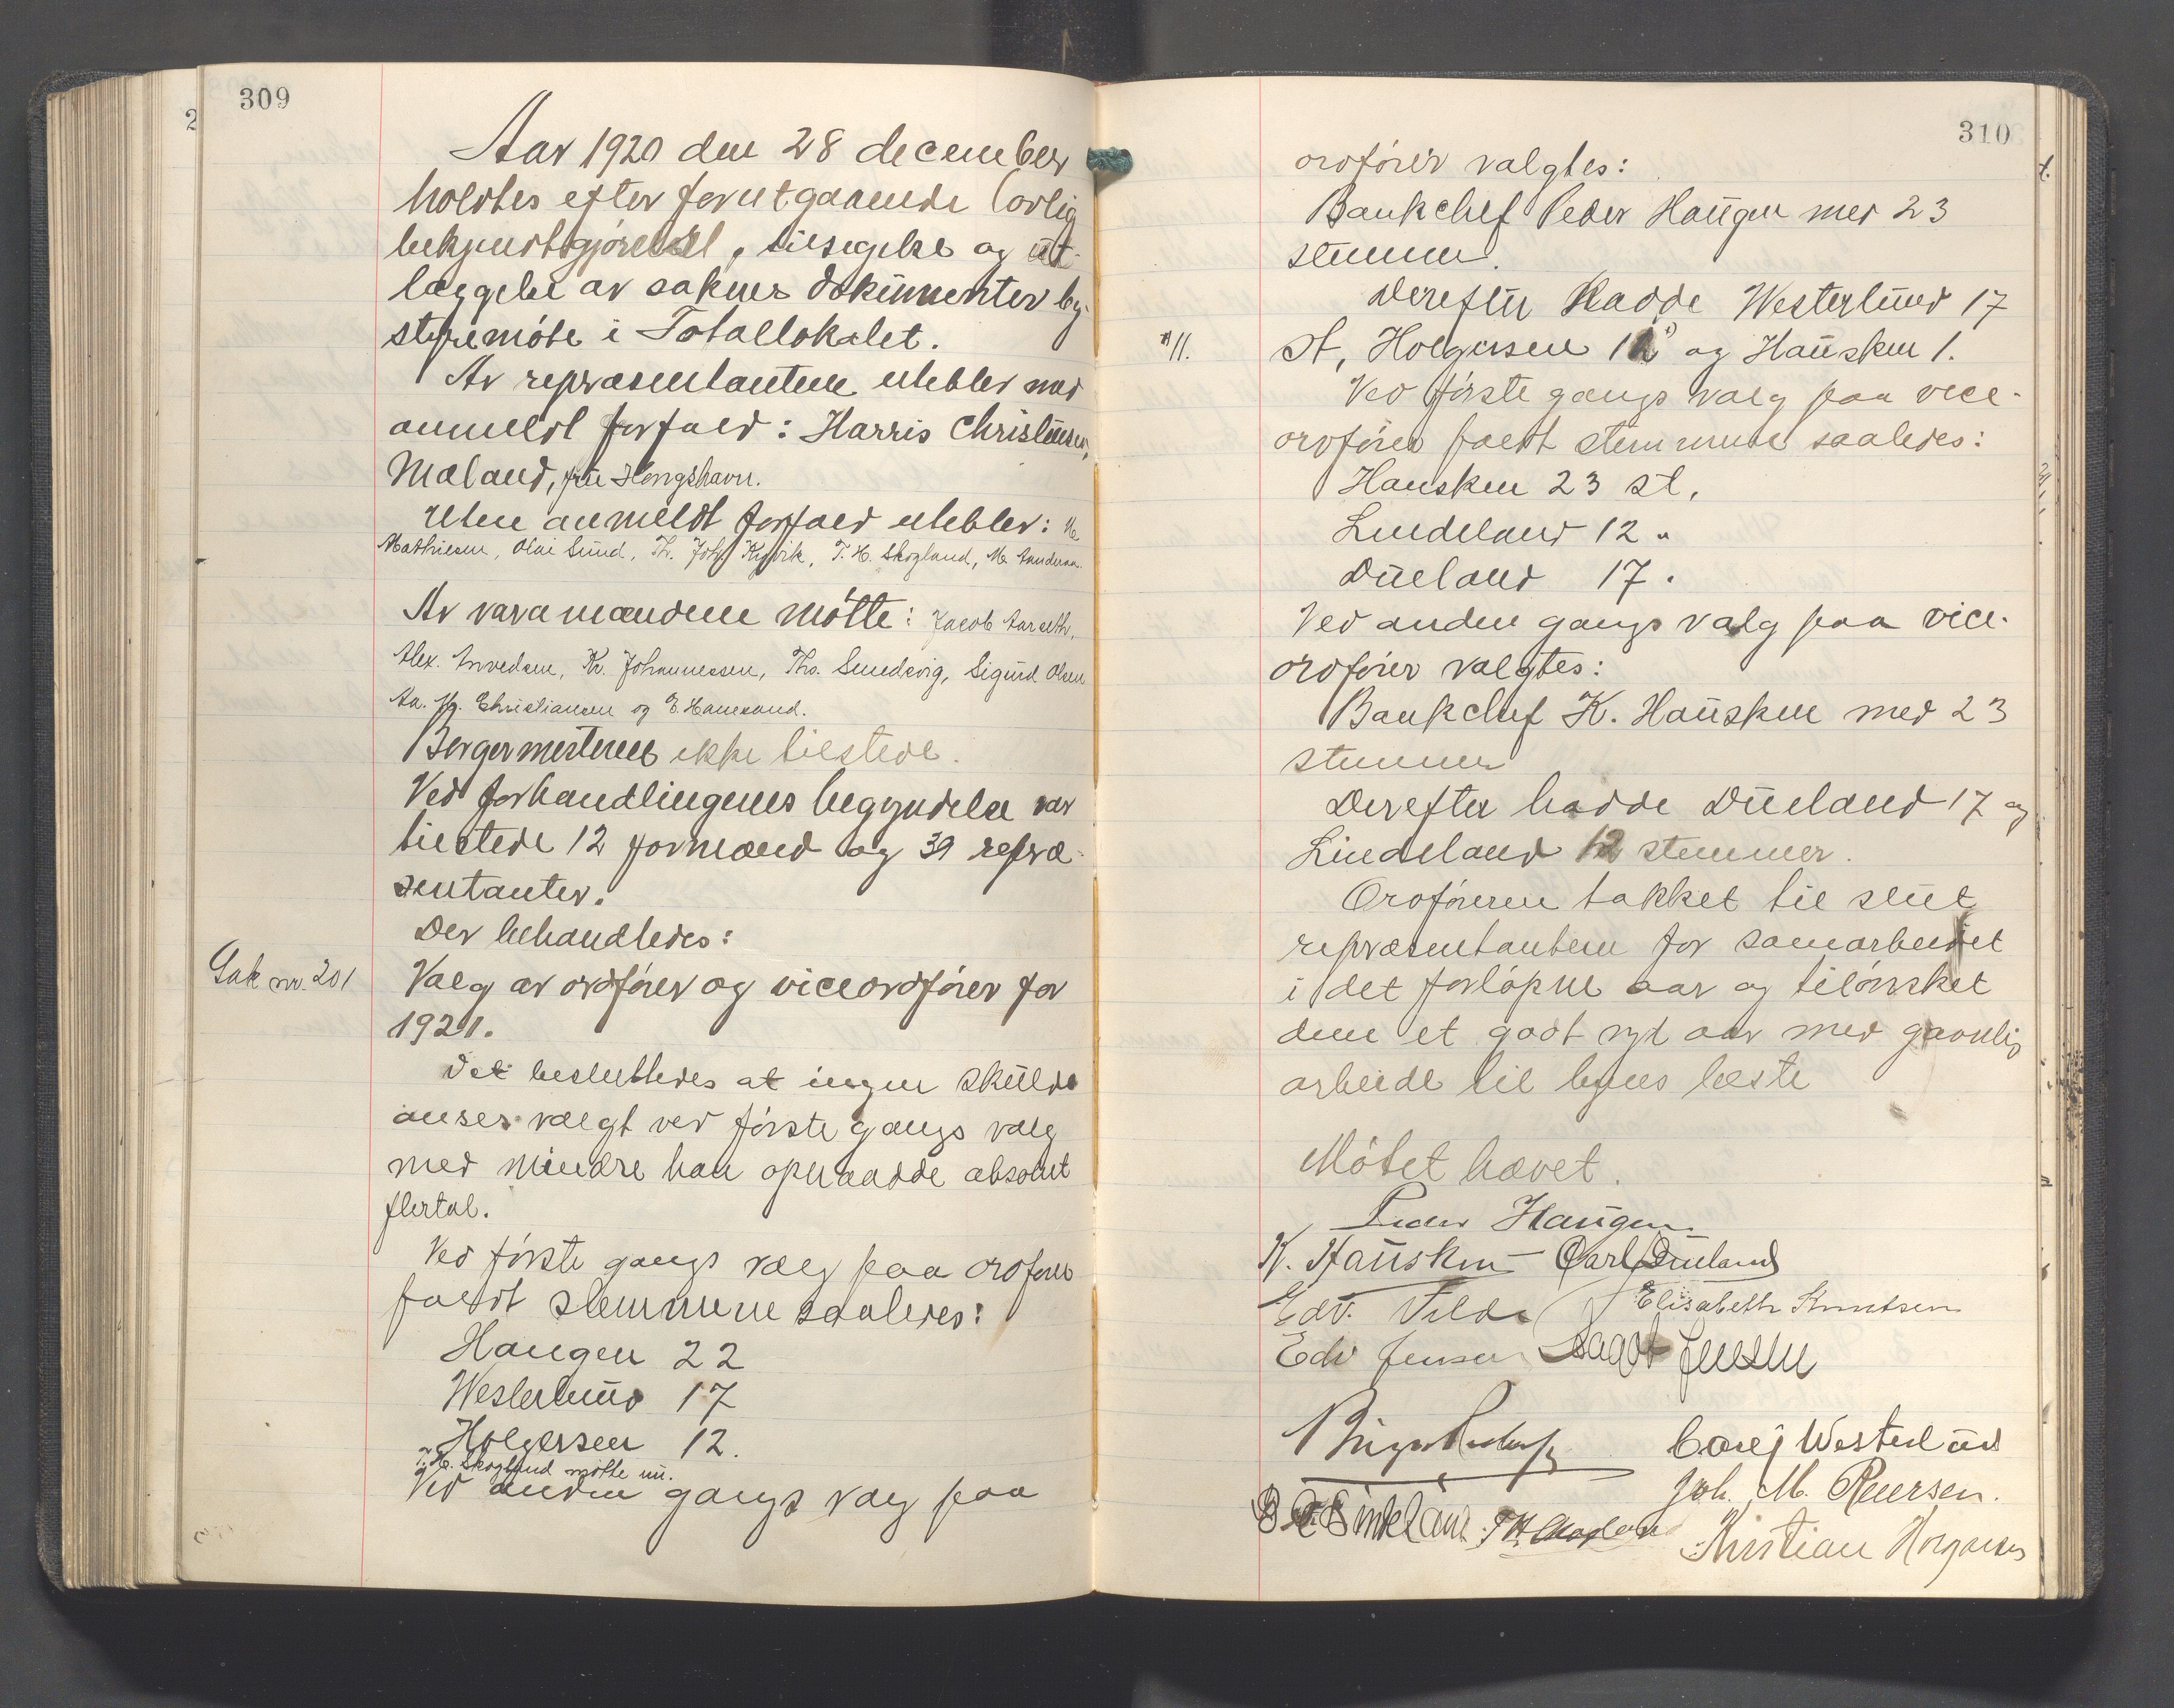 309
Aar 1920 den 28 december
holdtes efter forutgaaende lovlig
bekjendtgjörelse, tilsigelse og ut-
læggelse av sakens dokumenter by-
styremöte i Totallokalet.
Av repræsentantene uteblev med
anmeldt forfald: Harris Christensen,
Mæland, fru Hengshavn.
Uten anmeldt forfald uteblev: M.
Mathiesen, Olai Sund, Th. Joh. Kigvik, T. H. Skogland, M. Aanderaa.
Av varamændene mötte: Jacob Aarseth,
Alex. Arvedsen, Kr. Johannessen, Ths. Smedsvig, Sigurd Olsen
Aa. Christiansen og E. Hanesand.
Borgermesteren ikke tilstede.
Ved forhandlingenes begyndelse var
tilstede 12 formænd og 39 repræ-
sentanter.
Der behandledes:
Sak nr. 201
Valg av ordförer og viceordförer for
1921.
Det besluttedes at ingen skulde
anses valgt ved förste gangs valg
med mindre han opnaadde absolut
flertal.
Ved förste gangs valg paa ordförer
faldt stemmene saaledes:
Haugen 22
Westerlund 17
Holgersen 12.
T. H. Skogland mötte nu.
Ved anden gangs valg paa
310
ordförer valgtes:
Bankchef Peder Haugen med 23
stemmer.
Derefter hadde Westerlund 17
*11.
st, Holgersen 11* og Hausken 1.
Ved förste gangs valg paa vice-
ordförer faldt stemmene saaledes:
Hausken 23 st.
Lindeland 12 "
Dueland 17 "
Ved anden gangs valg paa vice-
ordförer valgtes:
Bankchef K. Hausken med 23
stemmer
Derefter hadde Dueland 17 og
Lindeland 12 stemmer.
Ordföreren takket til slut
repræsentantene for samarbeidet
i det forlöpne aar og tilönsket
dem et godt nyt aar med gavnlig
arbeide til byens beste
Mötet hævet.
Peder Haugen
K. Hausken Carl Dueland
Edv. Tilde Elisabeth Knutsen
Edv Jensen Jensen
Carl J Westerlund
Joh. M. Reiersen.
T H Skogland
Kristian Horgersen